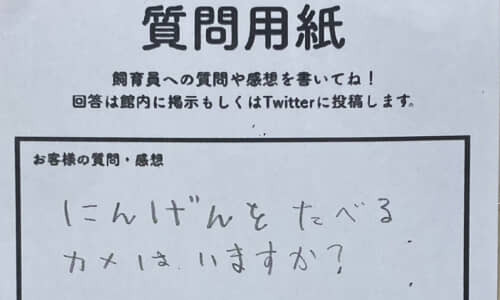 質問用紙
飼育員への質問や感想を書いてね！
回答は館内に掲示もしくはTwitterに投稿します。
お客様の質問・感想
にんげんをたべる
カメはいますか？